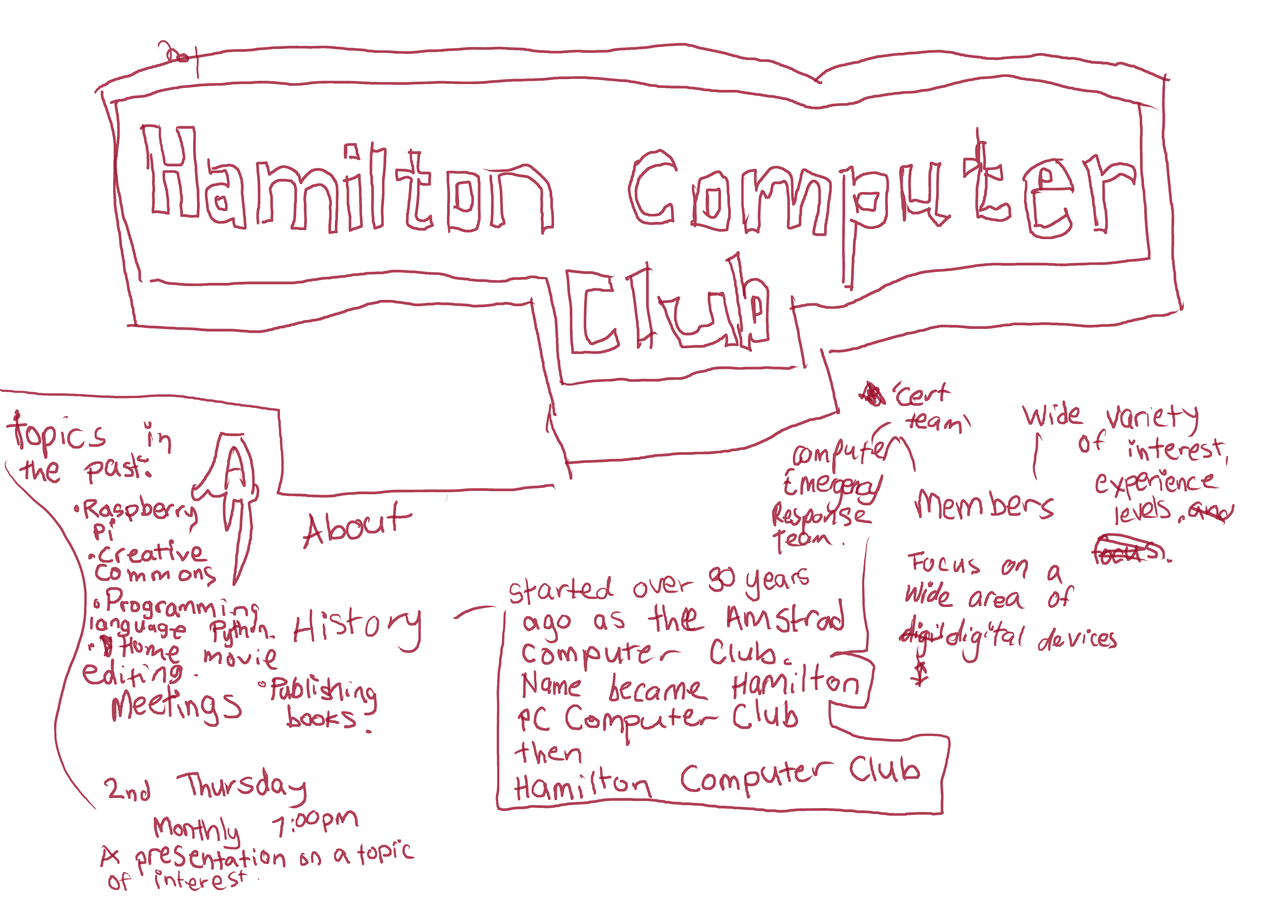 Hamilton Computer
Club
Topics in
the past:
• Raspberry
Pi
• Creative
Commons
• Programming
language Python.
• Home movie
editing.
• Publishing
books.
About
History
started over 30 years
ago as the Amstrad
Computer Club.
Name became Hamilton
PC Computer Club
then
Hamilton Computer Club
'cert
team'
Computer
Emergency
Response
Team.
Members
Wide variety
of interest,
experience
levels.
Focus on a
wide area of
digital devices
Meetings
2nd Thursday
Monthly 7:00pm
A presentation on a topic
of interest.